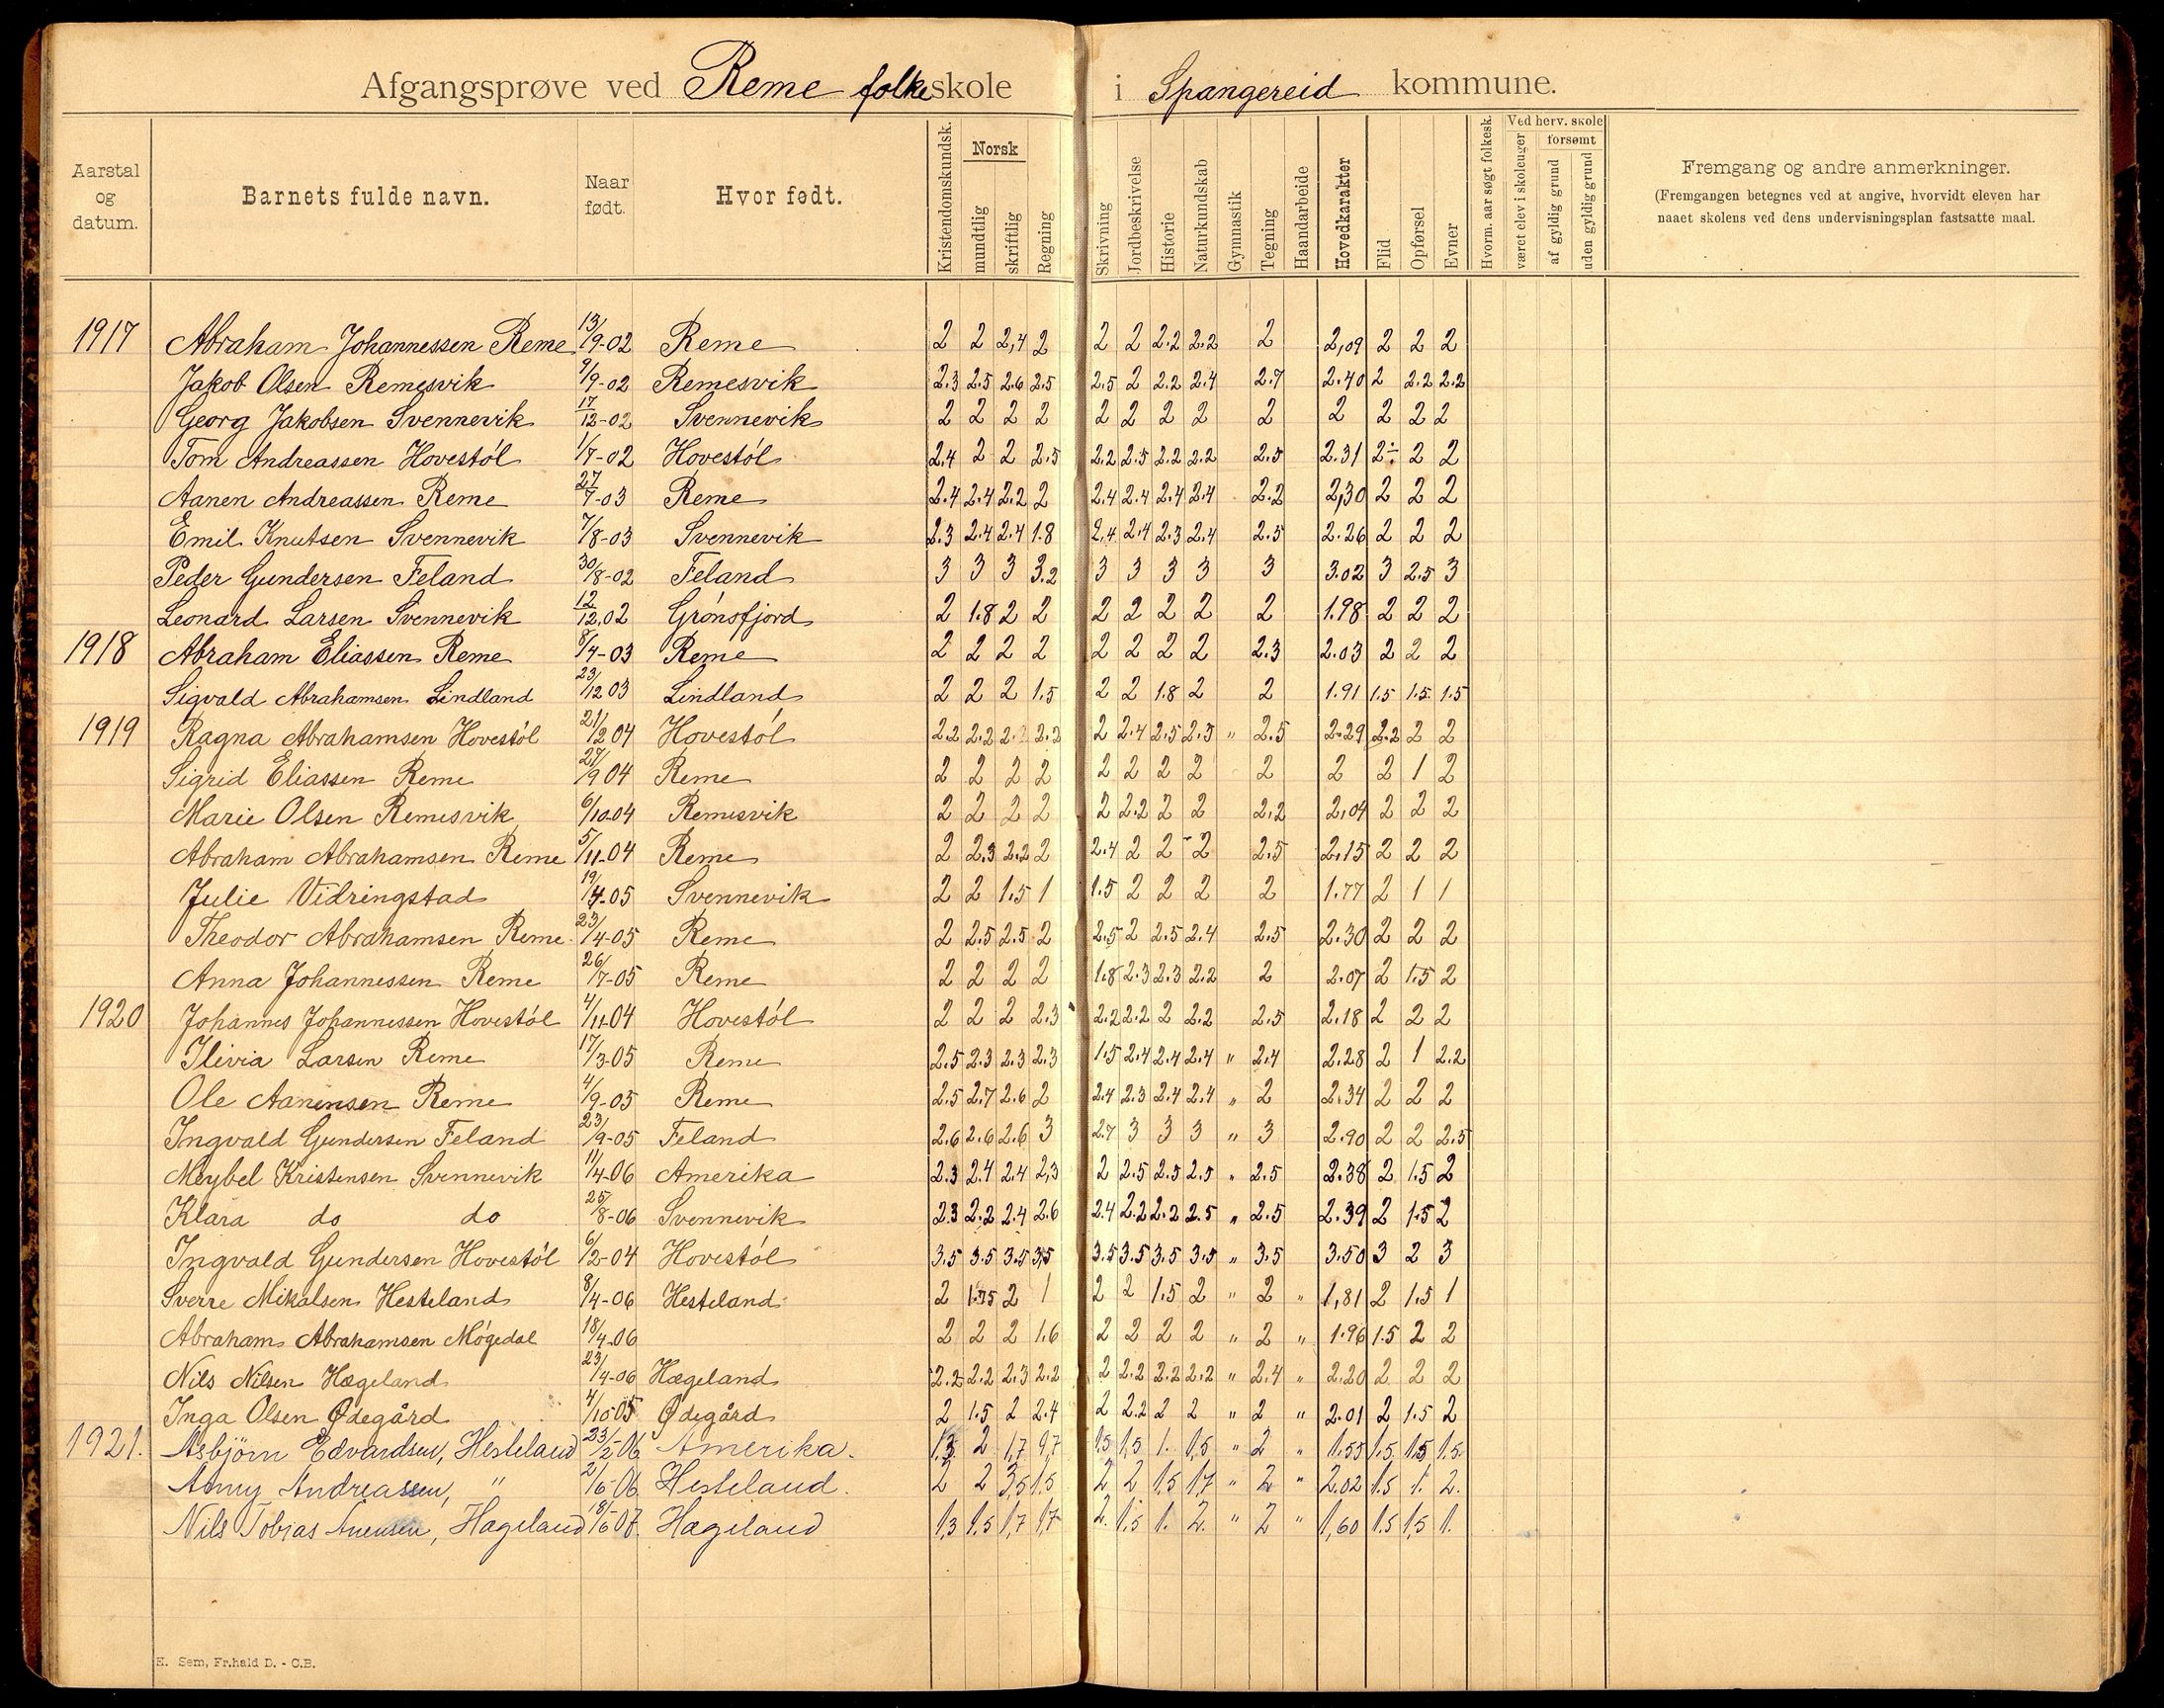 Afgangsprøve ved Reme folkeskole i Spangereid kommune.
Aarstal og datum. Barnets fulde navn. Naar født. Hvor født. Kristendomskundsk. Norsk mundtlig skriftlig Regning Skrivning Jordbeskrivelse Historie Naturkundskab Gymnastik Tegning Haandarbeide Hovedkarakter Flid Opførsel Evner Hvorm. aar søgt folkesk. Ved herv. skole været elev i skoleuger forsømt af gyldig grund uden gyldig grund Fremgang og andre anmerkninger.
(Fremgangen betegnes ved at angive, hvorvidt eleven har
naaet skolens ved dens undervisningsplan fastsatte maal.
1917 Abraham Johannessen Reme 13/9-02 Reme 2 2 2,4 2 2 2 2.2 2.2 2 2,09 2 2 2
Jakob Olsen Remesvik 9/9-02 Remesvik 2.3 2.5 2.6 2.5 2.5 2 2.2 2.4 2.7 2.40 2 2.2 2.2
Georg Jakobsen Svennevik 17/12-02 Svennevik 2 2 2 2 2 2 2 2 2 2 2 2 2
Tom Andreassen Hovestól 1/7-02 Hovestól 2.4 2 2 2.5 2.2 2.5 2.2 2.2 2.5 2.31 2÷ 2 2
Aanen Andreassen Reme 27/7-03 Reme 2.4 2.4 2.2 2 2.4 2.4 2.4 2.4 2.2 2,30 2 2 2
Emil Knutsen Svennevik 7/8-03 Svennevik 2.3 2.4 2.4 1.8 2.4 2.4 2.3 2.4 2.5 2.26 2 2 2
Peder Gundersen Feland 30/8-02 Feland 3 3 3 3.2 3 3 3 3 3 3.02 3 2.5 3
Leonard Larsen Svennevik 12/12.02 Grónsfjord 2 1.8 2 2 2 2 2 2 2 1.98 2 2 2
1918 Abraham Eliassen Reme 8/4-03 Reme 2 2 2 2 2 2 2 2 2.3 2.03 2 2 2
Sigvald Abrahamsen Lindland 23/12 03 Lindland 2 2 2 1.5 2 2 1.8 2 2 1.91 1.5 1.5 1.5
1919 Ragna Abrahamsen Hovestól 21/2 04 Hovestól 2.2 2.2 2.2 2.2 2 2.4 2.5 2.5 " 2.5 2.29 2.2 2 2
Sigrid Eliassen Reme 27/9 04 Reme 2 2 2 2 2 2 2 2 2 2 2 1 2
Marie Olsen Remesvik 6/10-04 Remesvik 2 2 2 2 2 2.2 2 2 2.2 2,04 2 2 2
Abraham Abrahamsen Reme 5/11-04 Reme 2 2.3 2.2 2 2.4 2 2 2 2.5 2.15 2 2 2
Julie Vidringstad 19/4-05 Svennevik 2 2 1.5 1 1.5 2 2 2 2 1.77 2 1 1
Theodor Abrahamsen Reme 23/4-05 Reme 2 2.5 2.5 2 2.5 2 2.5 2.4 2.5 2.30 2 2 2
Anna Johannessen Reme 26/7-05 Reme 2 2 2 2 1.8 2.3 2.3 2.2 2 2.07 2 1.5 2
1920 Johannes Johannessen Hovestól 4/11-04 Hovestól 2 2 2 2.3 2.2 2.2 2 2.2 2.5 2.18 2 2 2
Ilivia Larsen Reme 17/3-05 Reme 2.5 2.3 2.3 2.3 1.5 2.4 2.4 2.4 " 2.4 2.28 2 1 2.2
Ole Aanensen Reme 4/9-05 Reme 2.5 2.7 2.6 2 2.4 2.3 2.4 2.4 " 2 2.34 2 2 2
Ingvald Gundersen Feland 23/9-05 Feland 2.6 2.6 2.6 3 2.7 3 3 3 " 3 2.90 2 2 2.5
Meybel Kristensen Svennevik 11/4-06 Amerika 2.3 2.4 2.4 2,3 2 2.5 2.5 2.5 " 2.5 2.38 2 1.5 2
Klara do do 25/8-06 Svennevik 2.3 2.2 2.4 2.6 2.4 2.2 2.2 2.5 " 2.5 2.39 2 1.5 2
Ingvald Gundersen Hovestól 6/2-04 Hovestól 3.5 3.5 3.5 3,5 3.5 3.5 3.5 3.5 " 3.5 3.50 3 2 3
Sverre Mikalsen Hesteland 8/4-06 Hesteland 2 2 1 2 2 1.5 2 " 2 " 1,81 2 1.5 1
Abraham Abrahamsen Mógedal 18/4-06 2 2 2 1.6 2 2 2 2 " 2 " 1.96 1.5 2 2
Nils Nilsen Hægeland 23/4-06 Hægeland 2.2 2.2 2.3 2.2 2 2.2 2.2 2.2 " 2.4 " 2.20 2 2 2
Inga Olsen Ødegård 4/10-05 Ødegård 2 1.5 2 2.4 2 2.2 2 2 " 2 " 2.01 2 1.5 2
1921. Asbjörn Edvardsen, Hesteland 23/2-06 Amerika. 1,3 2 1,7 1,7 1,5 1,5 1. 1,5 " 2 " 1.55 1.5 1.5 1.5
Anny Andreassen, " 2/6-06 Hesteland. 2 2 3,5 1,5 2 2 1,5 1,7 " 2 " 2.02 1.5 1. 2.
Nils Tobias Anensen, Hægeland 18/6-07 Hægeland 1,3 1,5 1,7 1,7 2. 1,5 1. 2. " 2 " 1,60 1.5 1,5 1.
H. Sem, Fr.hald D. - C.B.